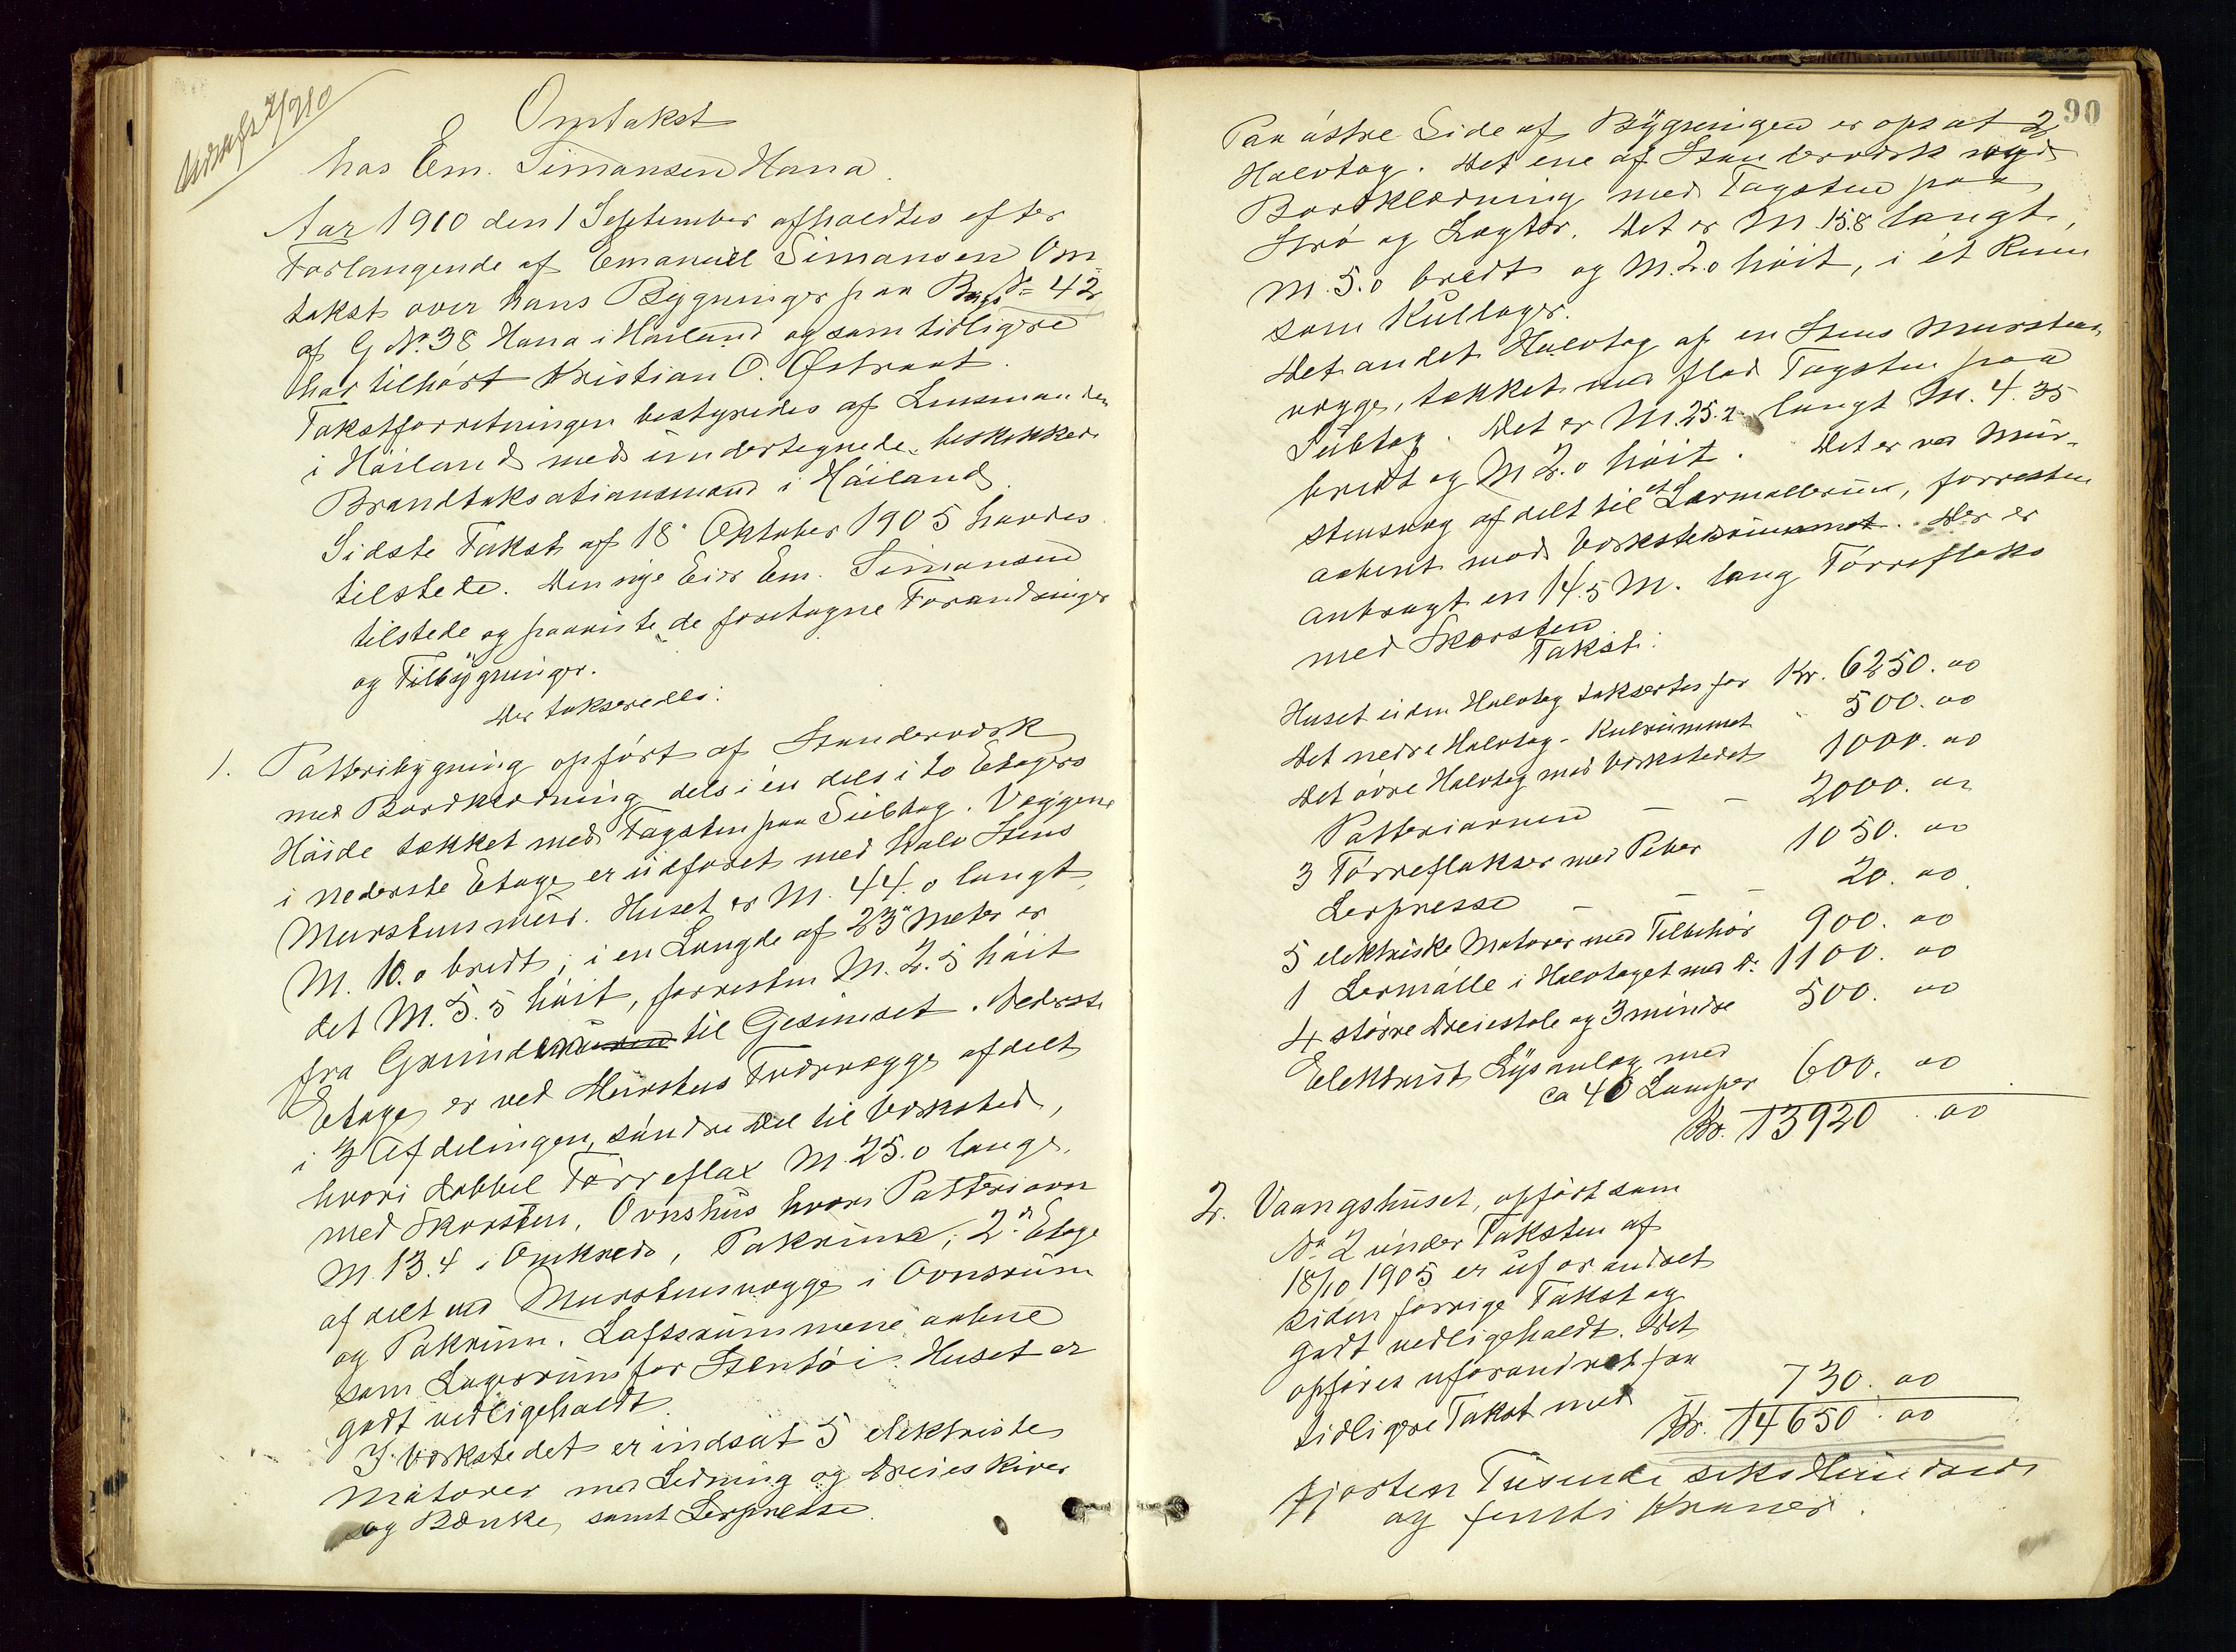 Udskrift 2/9 10
Omtakst
hos Em. Simonsen Hana.
Aar 1910 den 1 September afholdtes efter
Forlangende af Emanuel Simonsen Om-
takst over hans Bygninger paa Brugs No 42
af G No 38 Hana i Høiland og som tidligere
har tilhørt Kristian O. Østraat.
Takstforretningen bestyredes af Lensmanden
i Høiland med undertegnede beskikkede
Brandtaksationsmænd i Høiland.
Sidste Takst af 18 Oktober 1905 havdes
tilstede. Den nye Eier Em. Simonsen
tilstede og paaviste de foretagne Forandringer
og Tilbygninger.
Der takseredes:
1. Potteribygning opført af Standerværk
med Bordklædning dels i én dels i to Etagers
Høide tækket med Tagsten paa Subtag. Væggene
i nederste Etage er udforet med halv Stens
Murstensmur. Huset er M. 44.0 langt,
M. 10.0 bredt; i en Længde af 23 Meter er
det M. 5.5 høit, forresten M. 2.5 høit
fra Grundmuren til Gesimset. Nederste
Etage er ved Murstens Tværvægge afdelt
i 3 Afdelinger, søndre Del til Værksted,
hvori dobbel Tørreflax M. 25.0 lange,
med Skorsten, Ovnshus hvori Potteriovn
M. 13.4 i Omkreds, Pakrum; 2den Etage
afdelt ved Murstensvægge i Ovnsrum
og Pakrum. Loftsrummene aabne
som Lagerrum for Stentøi. Huset er
godt vedligeholdt.
I Værkstedet er indsat 5 elektriske
Motorer med Ledning og Dreieskiver
og Bænke, samt Lerpresse.
90
Paa østre Side af Bygningen er opsat 2
Halvtag. Det ene af Standerværk med
Bordklædning med Tagsten paa
Strø og Lægter. Det er M. 15.8 langt,
M. 5.0 bredt og M. 2.0 høit, i ét Rum
som Kullager.
Det andet Halvtag af en Stens Murstens
vægge, tækket med flad Tagsten paa
Subtag. Det er M. 25.2 langt M. 4.35
bredt og M 2.0 høit. Det er ved Mur-
stensvæg afdelt til et Lermøllerum, forresten
aabent mod Værkstedsrummet. Der er
anbragt en 14.5 M. lang Tørreflaks
med Skorsten
Takst:
Huset uden Halvtag taksertes for Kr. 6250.00
Det nedre Halvtag - Kulrummet - 500.00
Det øvre Halvtag med Værkstedet 1000.00
Potteriovnen — — 2000.00
3 Tørreflakser med Piber 1050.00
Lerpresse — — 20.00
5 elektriske Motorer med Tilbehør 900.00
1 Lermølle i Halvtaget med do 1100.00
4 større Dreiestole og 3 mindre 500.00
Elektrisk Lysanlæg med
ca 40 Lamper 600.00
Kr. 13920.00
2. Vaangshuset, opført som
No 2 under Taksten af
18/10 1905 er uforandret
siden forrige Takst og
godt vedligeholdt. Det
opføres uforandret fra
tidligere Takst med 730.00
Kr. 14650.00
Fjorten Tusende seks Hundrede
og femti Kroner.